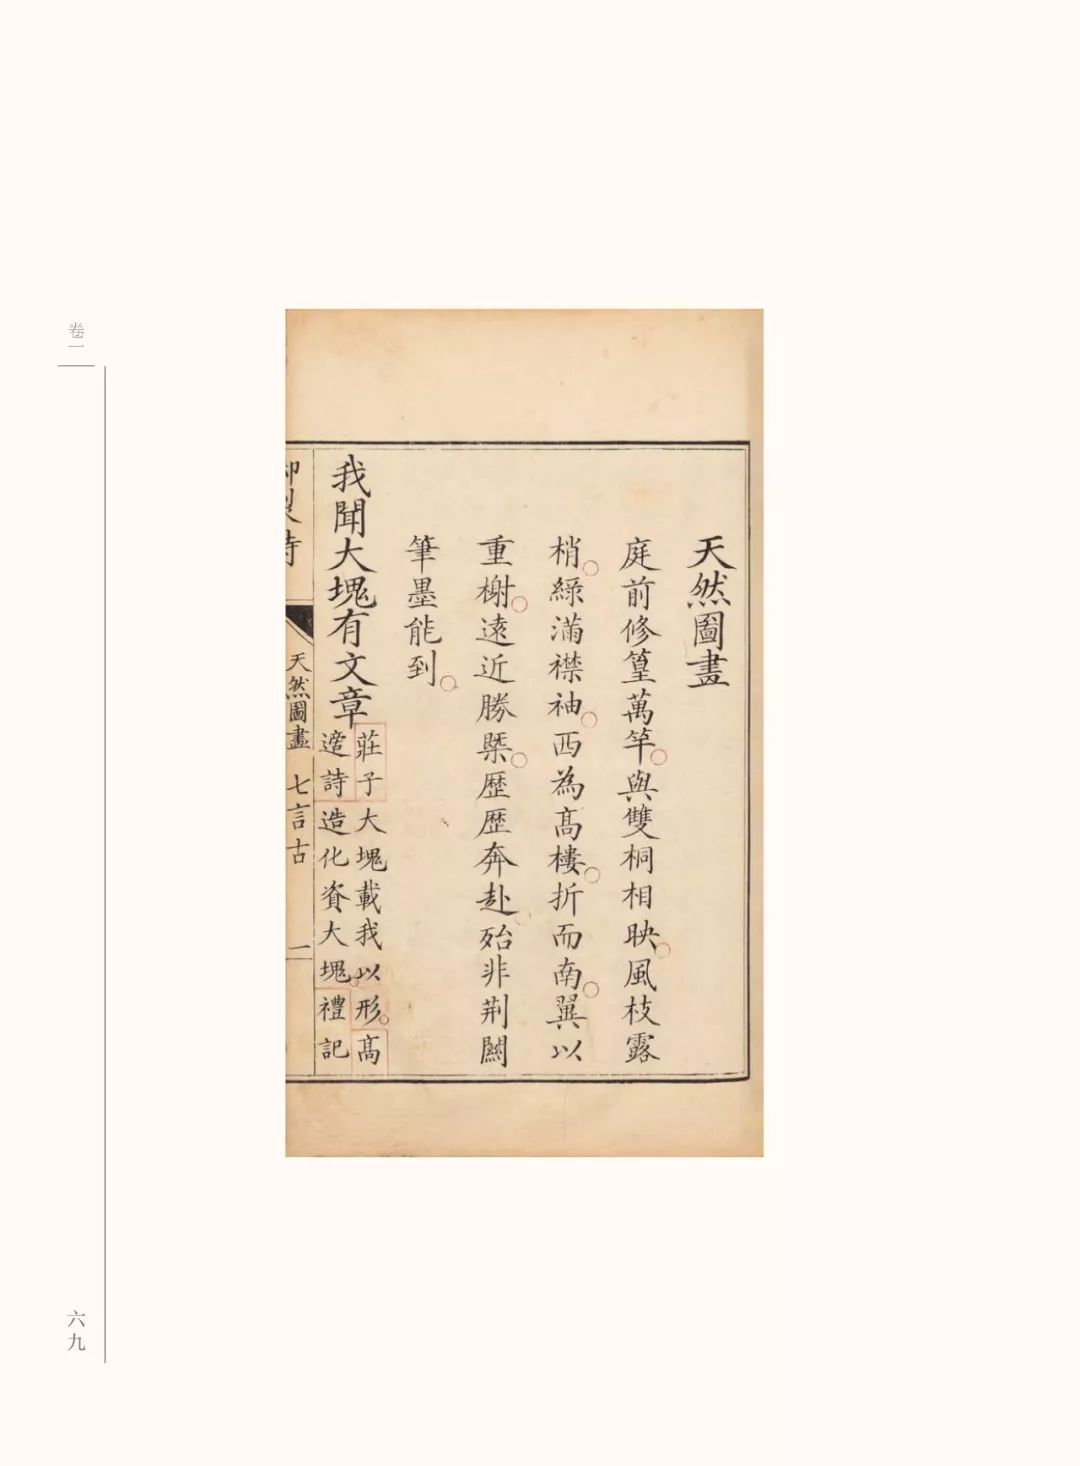 天然圖畫
庭前修篁萬竿與雙桐相映風枝露
梢綠滿襟袖西為高樓折而南翼以
重榭遠近勝槩歷歷奔赴殆非荆關
筆墨能到
我聞大塊有文章
莊子大塊載我以形高
適詩造化資大塊禮記
御製詩
天然圖畫 七言古 一
卷一
六九